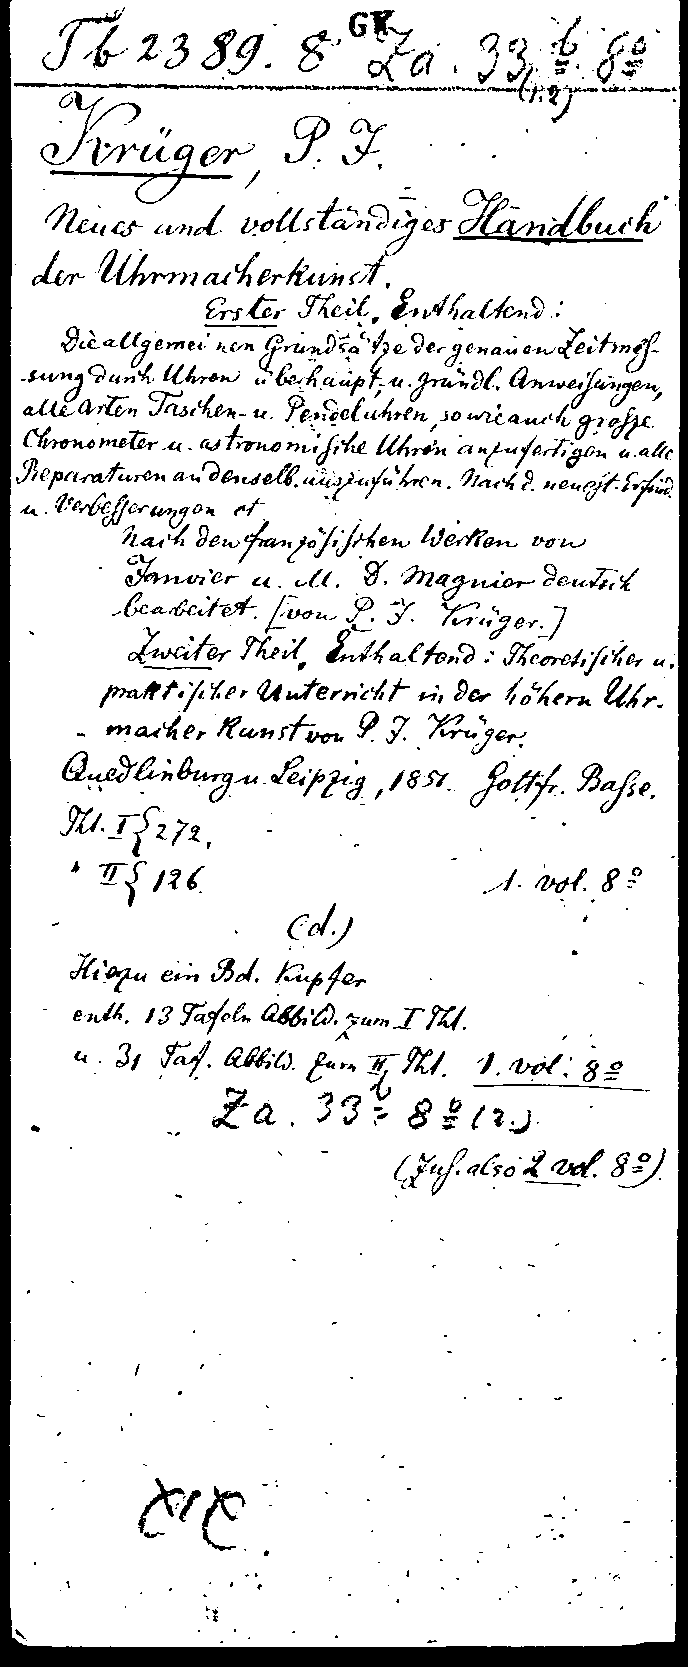 Tb 2389. 8° GK Za. 33, b. 8°
(1.2)
Krüger, P. J.
Neues und vollständiges Handbuch
der Uhrmacherkunst.
Erster Theil. Enthaltend:
Die allgemeinen Grundsätze der genauen Zeitmes-
sung durch Uhren überhaupt, u. gründl. Anweisungen,
alle Arten Taschen- u. Pendeluhren, so wie auch grosse
Chronometer u. astronomische Uhren anzufertigen u. alle
Reparaturen an denselb. auszuführen. Nach d. neuest. Erfind.
u. Verbesserungen et
Nach den französischen Werken von
Janvier u. M. D. Magnier deutsch
bearbeitet. [von P. J. Krüger.]
Zweiter Theil. Enthaltend: Theoretischer u.
praktischer Unterricht in der höhern Uhr-
macherkunst von P. J. Krüger.
Quedlinburg u. Leipzig, 1851. Gottfr. Basse.
Thl. I { 272.
" II { 126. 1. vol. 8°
(d.)
Hiezu ein Bd. Kupfer
enth. 13 Tafeln Abbild. zum I Thl.
u. 31 Taf. Abbild. zum II Thl. 1. vol. 8°
Za. 33 b 8° (2.)
(Zus. also 2 vol. 8°)
XIX